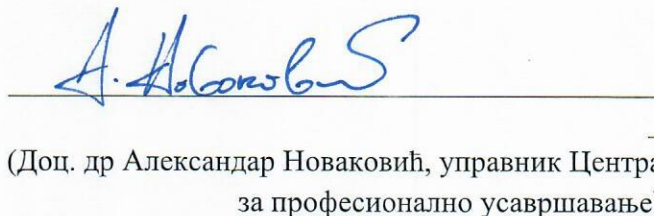 А. Новаковић
(Доц. др Александар Новаковић, управник Центра
за професионално усавршавање